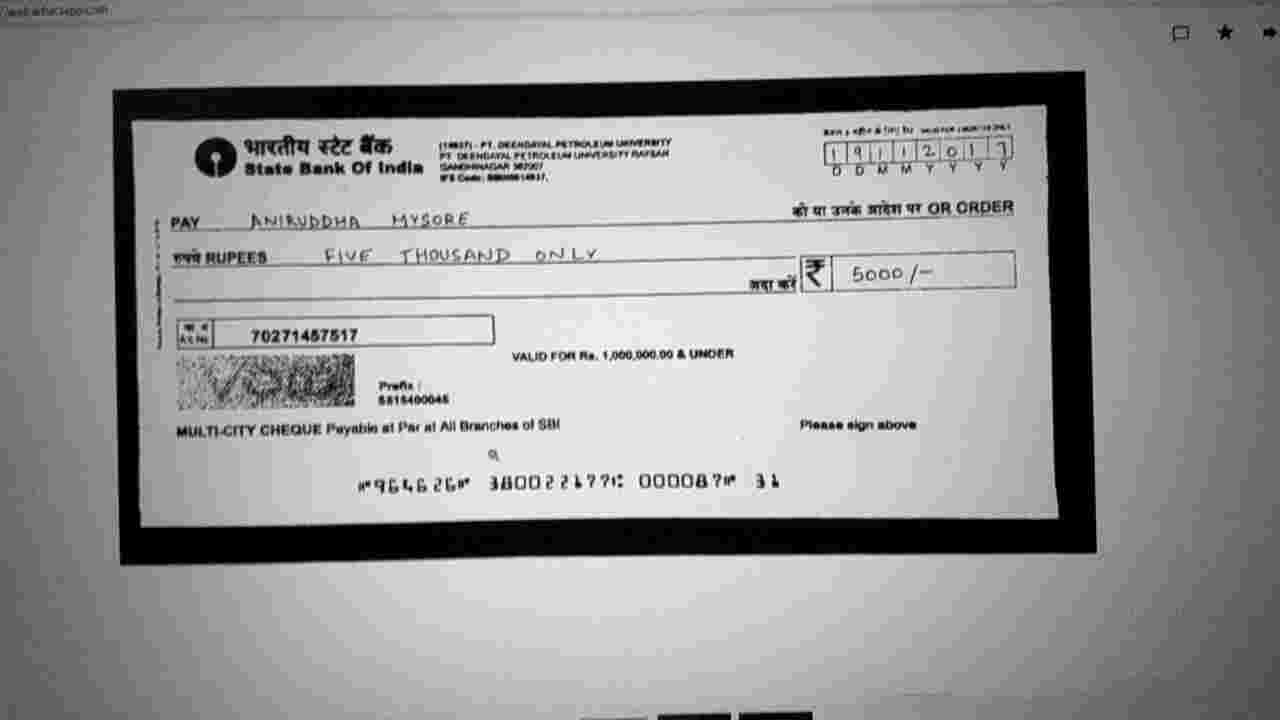 भारतीय स्टेट बैंक
State Bank Of India
(14937) - PT. DEENDAYAL PETROLEUM UNIVERSITY
PT. DEENDAYAL PETROLEUM UNIVERSITY RAYSAN
GANDHINAGAR 382007
IFS Code:
19112017
D D M M Y Y Y Y
PAY ANIRUDDHA MYSORE को या उनके आदेश पर OR ORDER
रुपये RUPEES FIVE THOUSAND ONLY
अदा करें ₹ 5000/-
A/c No. 70271457517
VALID FOR Rs. 1,000,000.00 & UNDER
Prefix :
MULTI-CITY CHEQUE Payable at Par at All Branches of SBI
Please sign above
⑈964626⑈ 380022177⑆ 000087⑈ 31